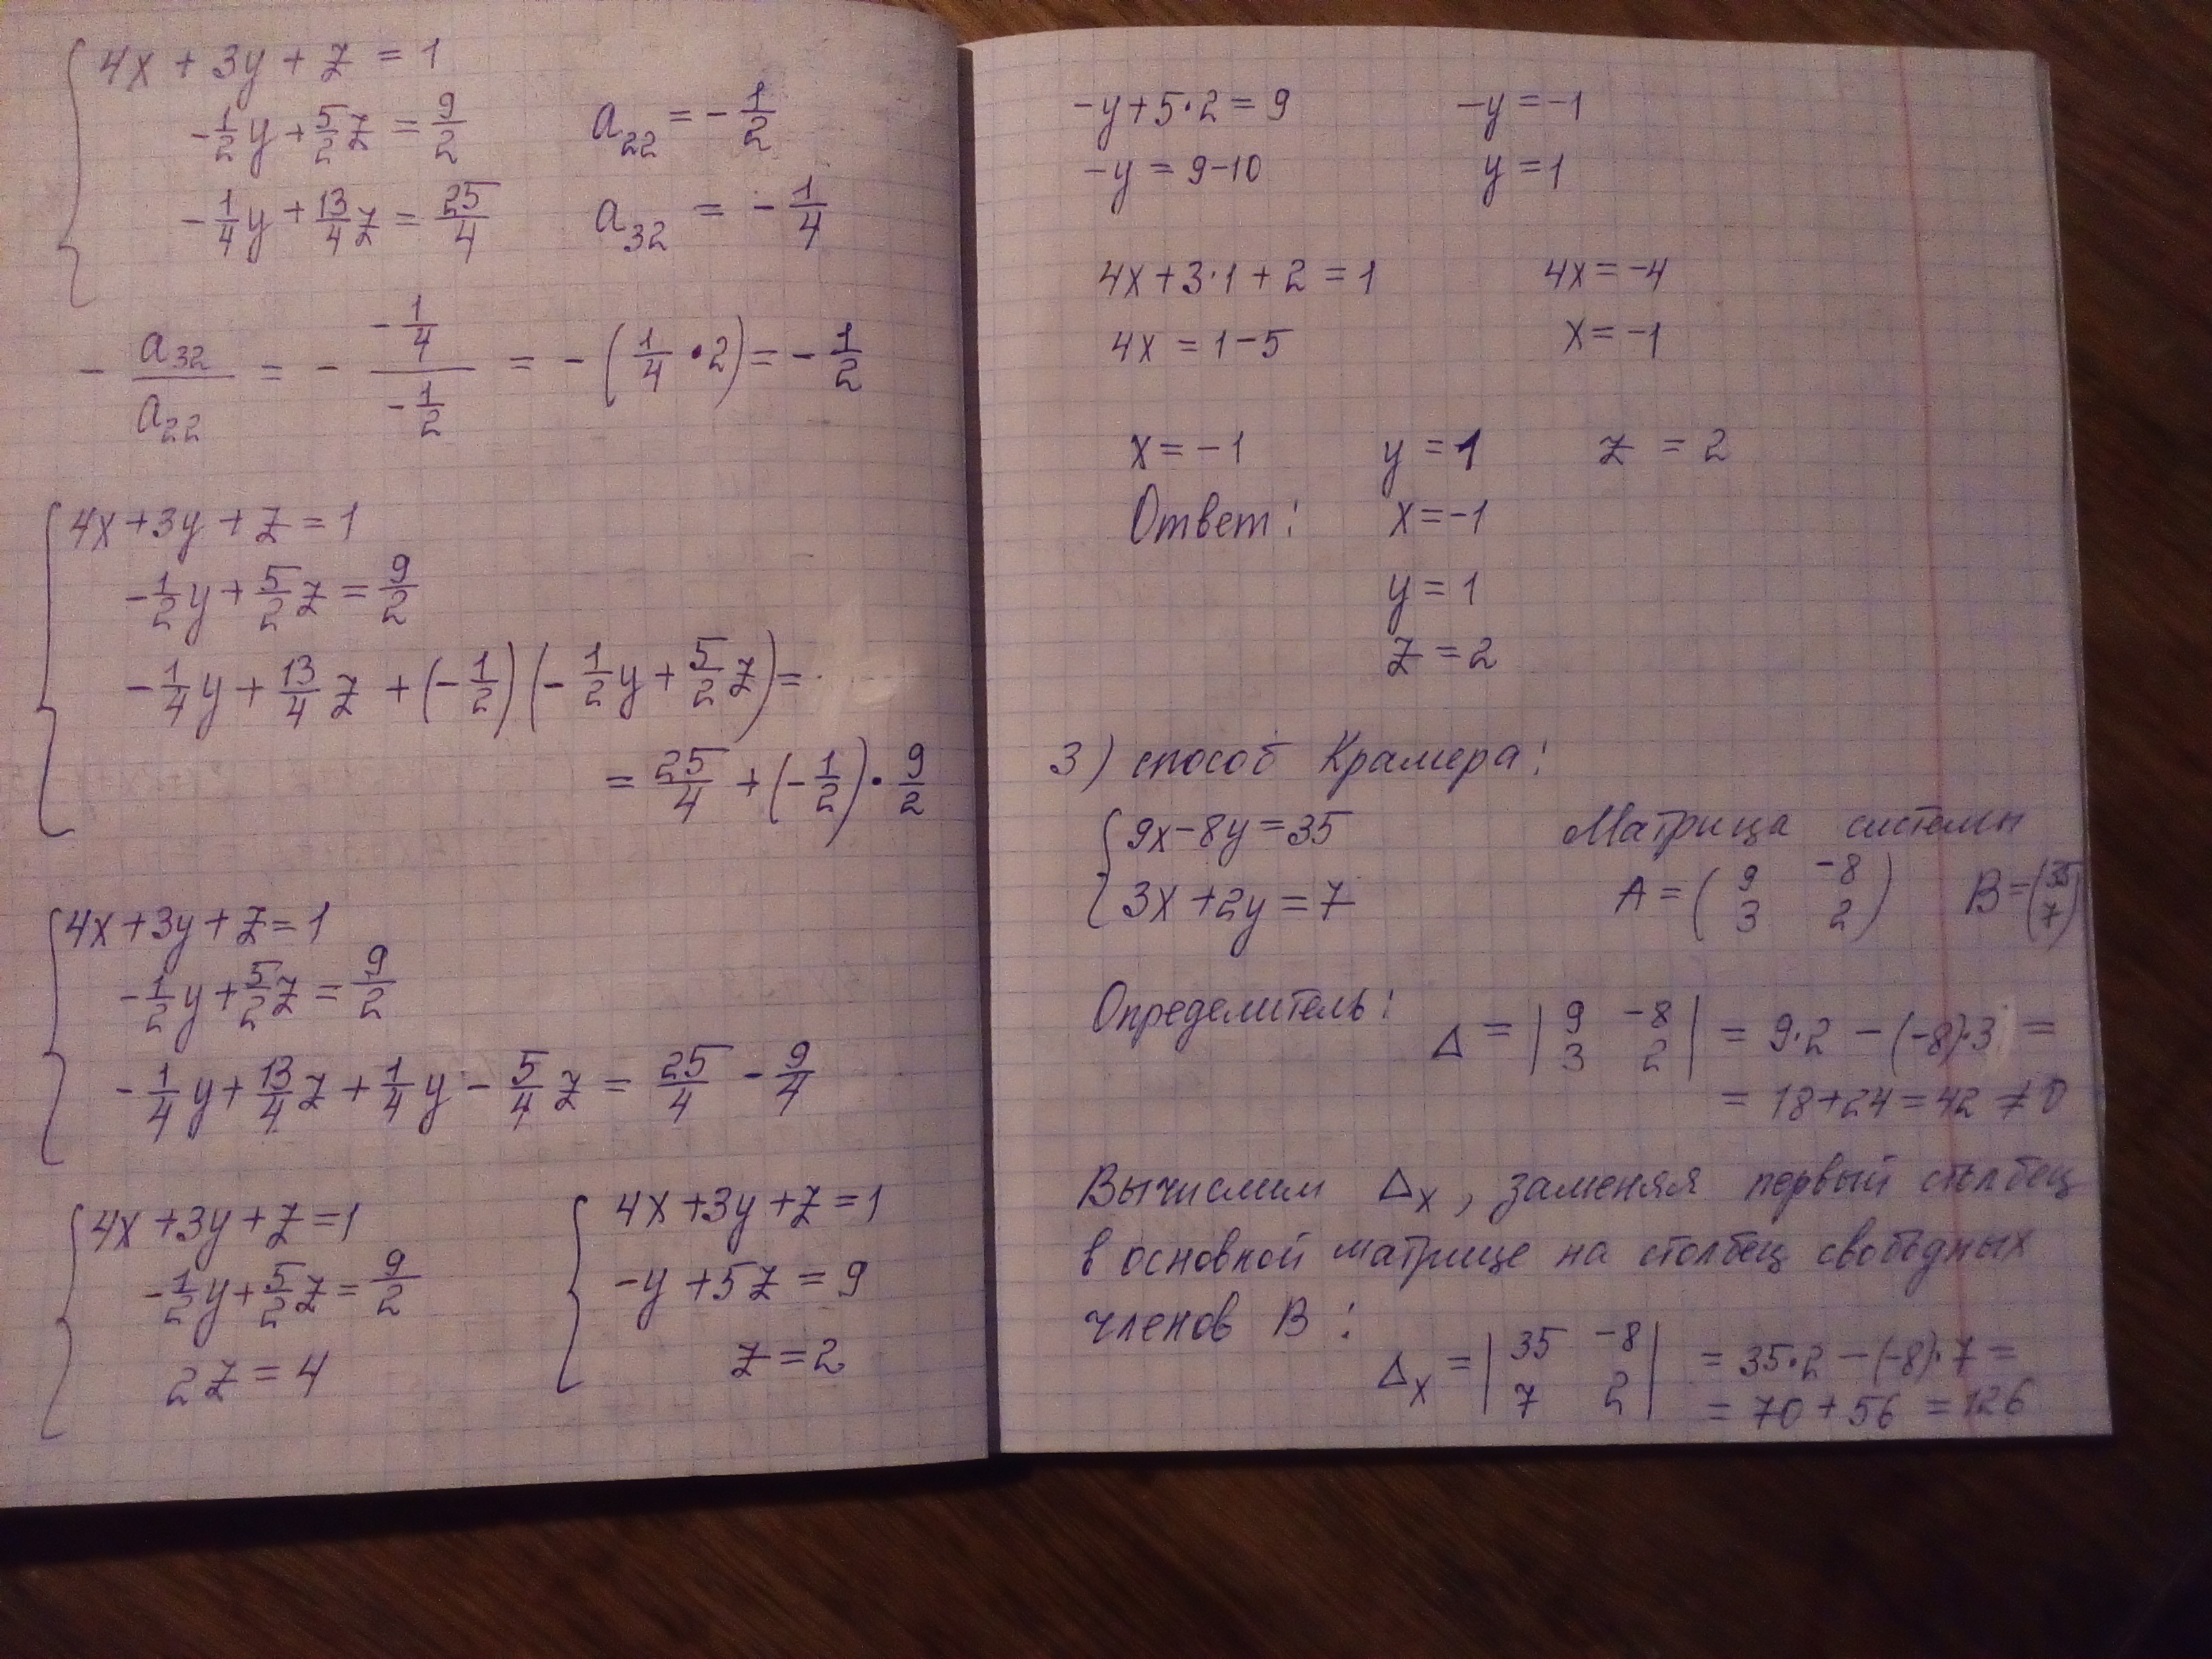 4x + 3y + z = 1
-1/2 y + 5/2 z = 9/2    a₂₂ = -1/2
-1/4 y + 13/4 z = 25/4    a₃₂ = -1/4
- a₃₂/a₂₂ = - (-1/4)/(-1/2) = -(1/4 • 2) = -1/2
4x + 3y + z = 1
-1/2 y + 5/2 z = 9/2
-1/4 y + 13/4 z + (-1/2)(-1/2 y + 5/2 z) =
= 25/4 + (-1/2) • 9/2
4x + 3y + z = 1
-1/2 y + 5/2 z = 9/2
-1/4 y + 13/4 z + 1/4 y - 5/4 z = 25/4 - 9/4
4x + 3y + z = 1    4x + 3y + z = 1
-1/2 y + 5/2 z = 9/2    -y + 5z = 9
2z = 4    z = 2
-y + 5•2 = 9    -y = -1
-y = 9-10    y = 1
4x + 3•1 + 2 = 1    4x = -4
4x = 1-5    x = -1
x = -1    y = 1    z = 2
Ответ: x = -1
y = 1
z = 2
3) способ Крамера:
9x - 8y = 35    Матрица системы
3x + 2y = 7    A = (9 -8; 3 2)    B = (35; 7)
Определитель: Δ = |9 -8; 3 2| = 9•2 - (-8)•3 =
= 18 + 24 = 42 ≠ 0
Вычислим Δx, заменяя первый столбец
в основной матрице на столбец свободных
членов B:
Δx = |35 -8; 7 2| = 35•2 - (-8)•7 =
= 70 + 56 = 126